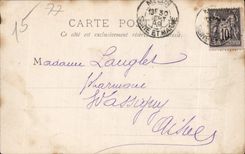 15 77
CARTE POSTALE
Ce côté est exclusivement
MELUN
30
SEINE ET MARNE
Madame Langlet
Pharmacie
Wassigny
Aisne